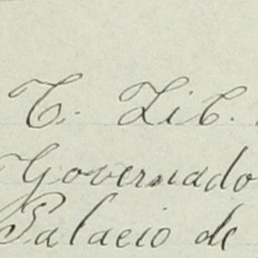 T. Lib.
Governado
Palacio de